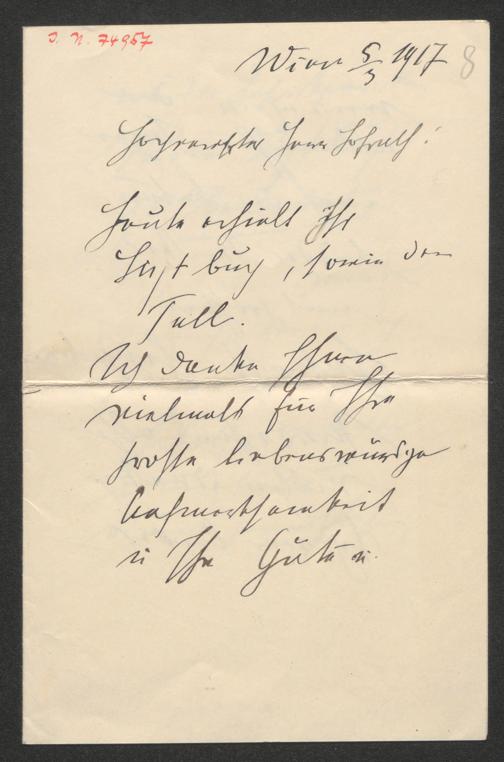 I. N. 74957
Wien 5/3 1917 8
Hochverehrter Herr Hofrath!
Heute erhielt Ihr
buch, sowie den
Tell.
Ich danke Ihnen
vielmals für Ihre
große liebenswürdige
Aufmerksamkeit
u Ihre Güte u.